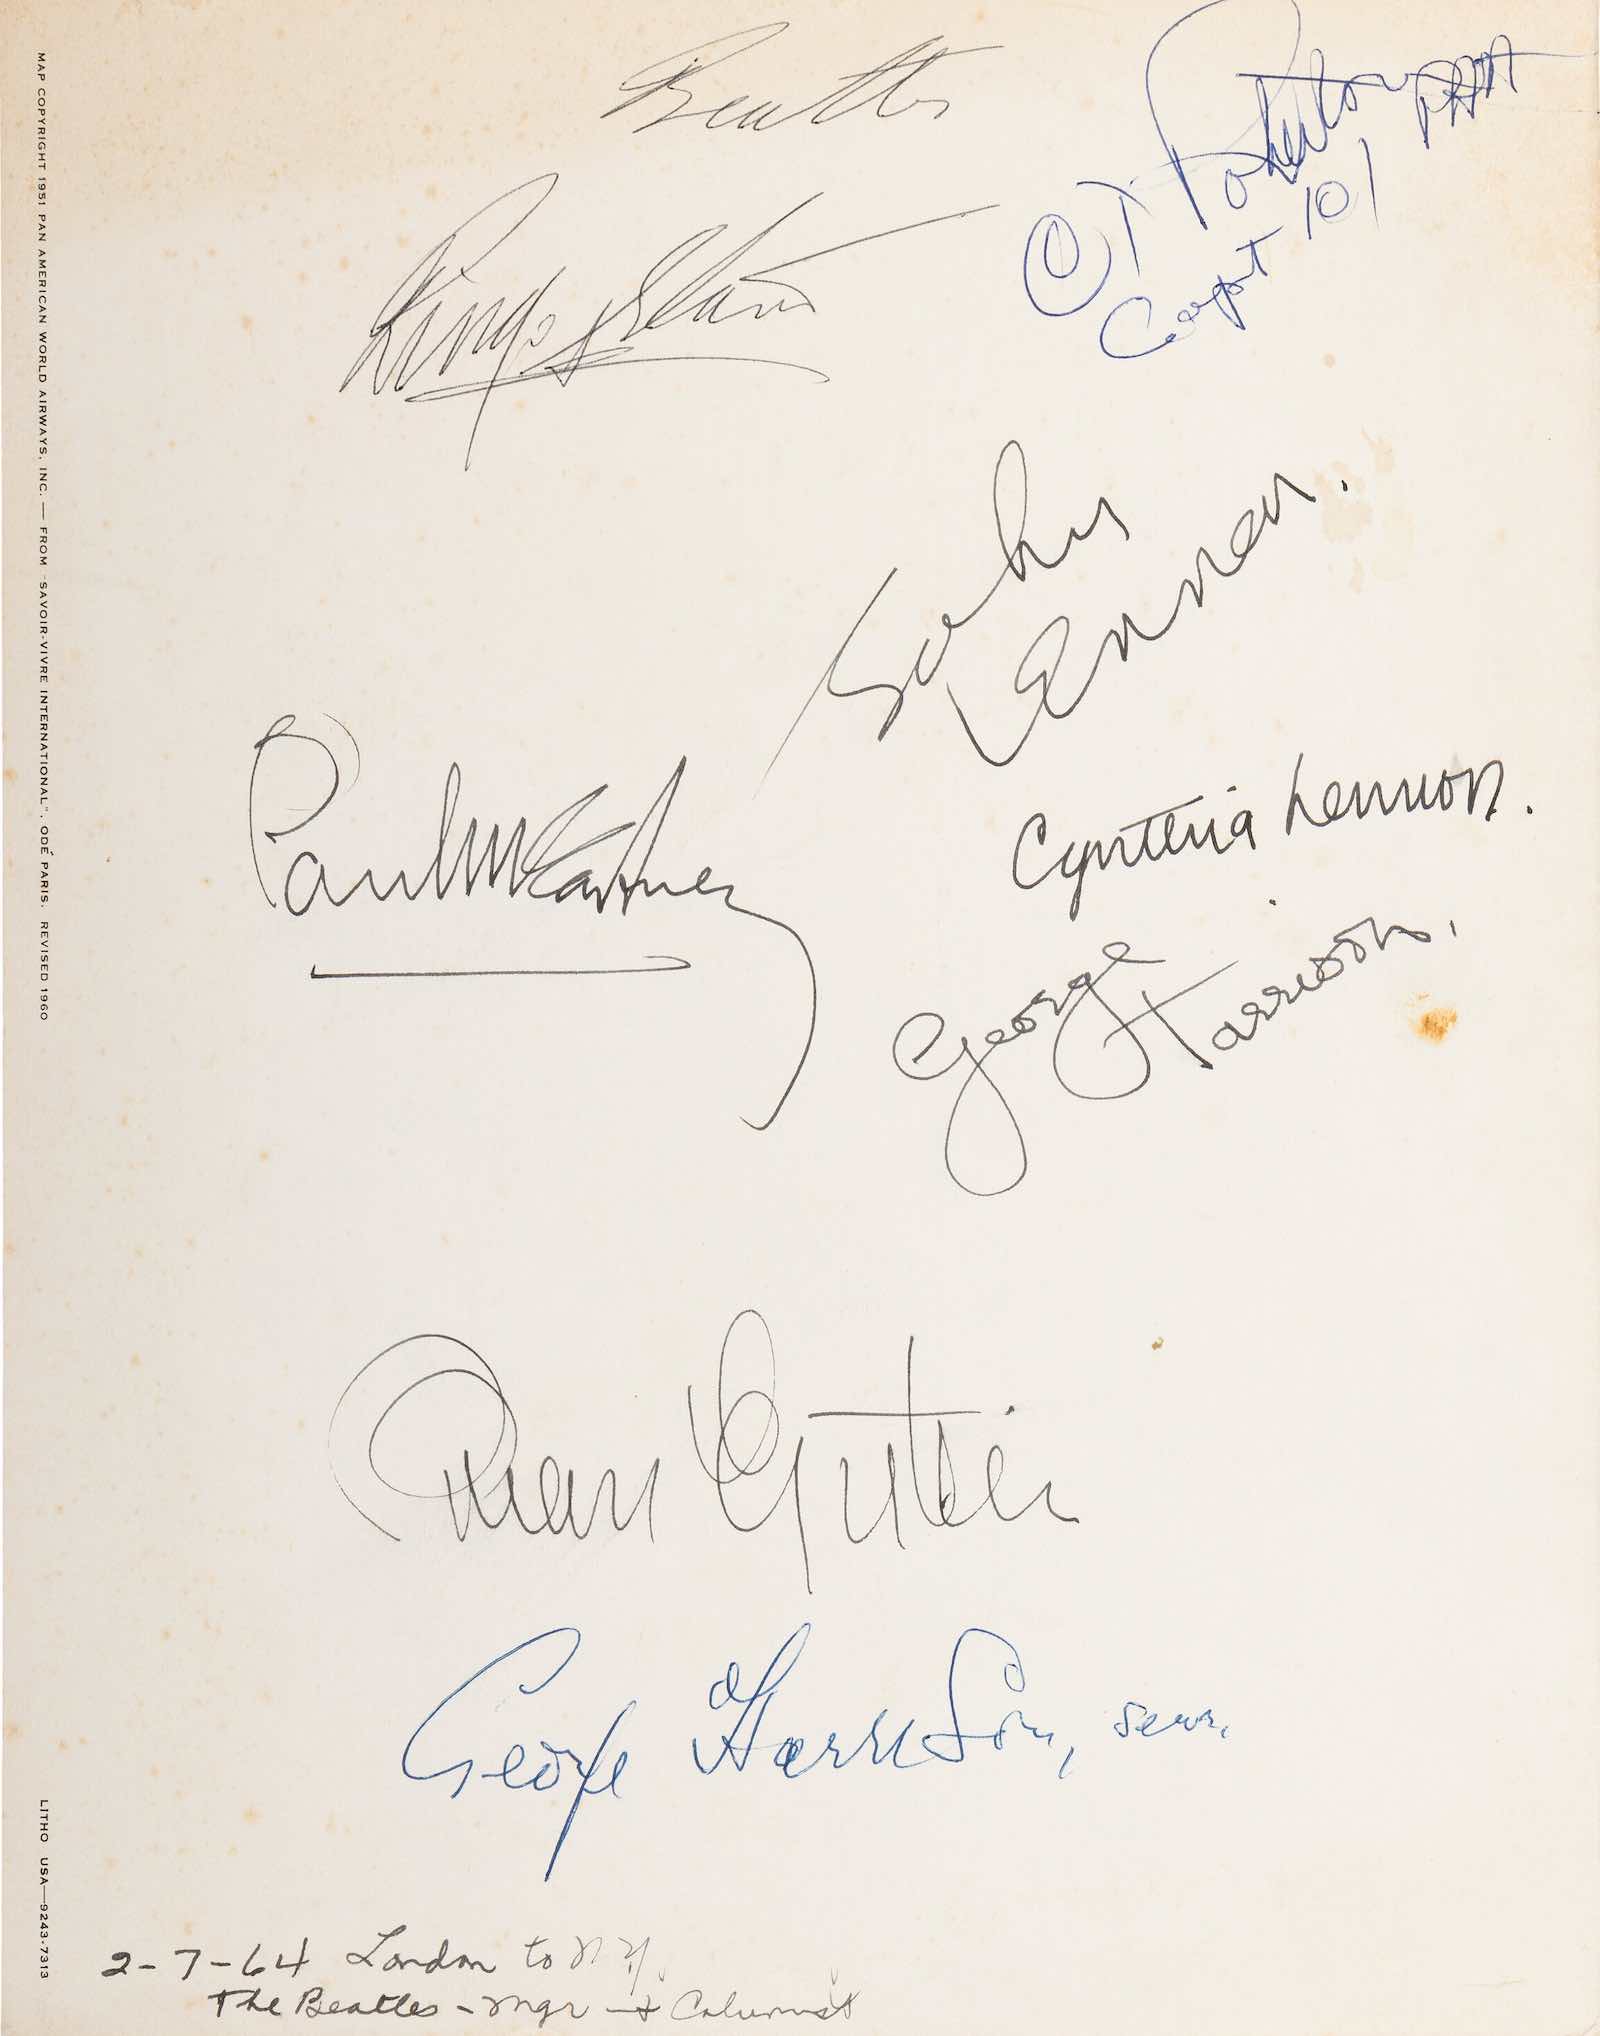 MAP COPYRIGHT 1951 PAN AMERICAN WORLD AIRWAYS, INC. — FROM "SAVOIR-VIVRE INTERNATIONAL", ODÉ PARIS. REVISED 1960
LITHO USA—9243-7313
Beatles
Ringo Starr
Capt 101 PAA
John
Lennon.
Paul McCartney
Cynthia Lennon.
George
Harrison.
Brian Epstein
George Harrison, senr.
2-7-64 London to N.Y.
The Beatles - mgr + Columnist